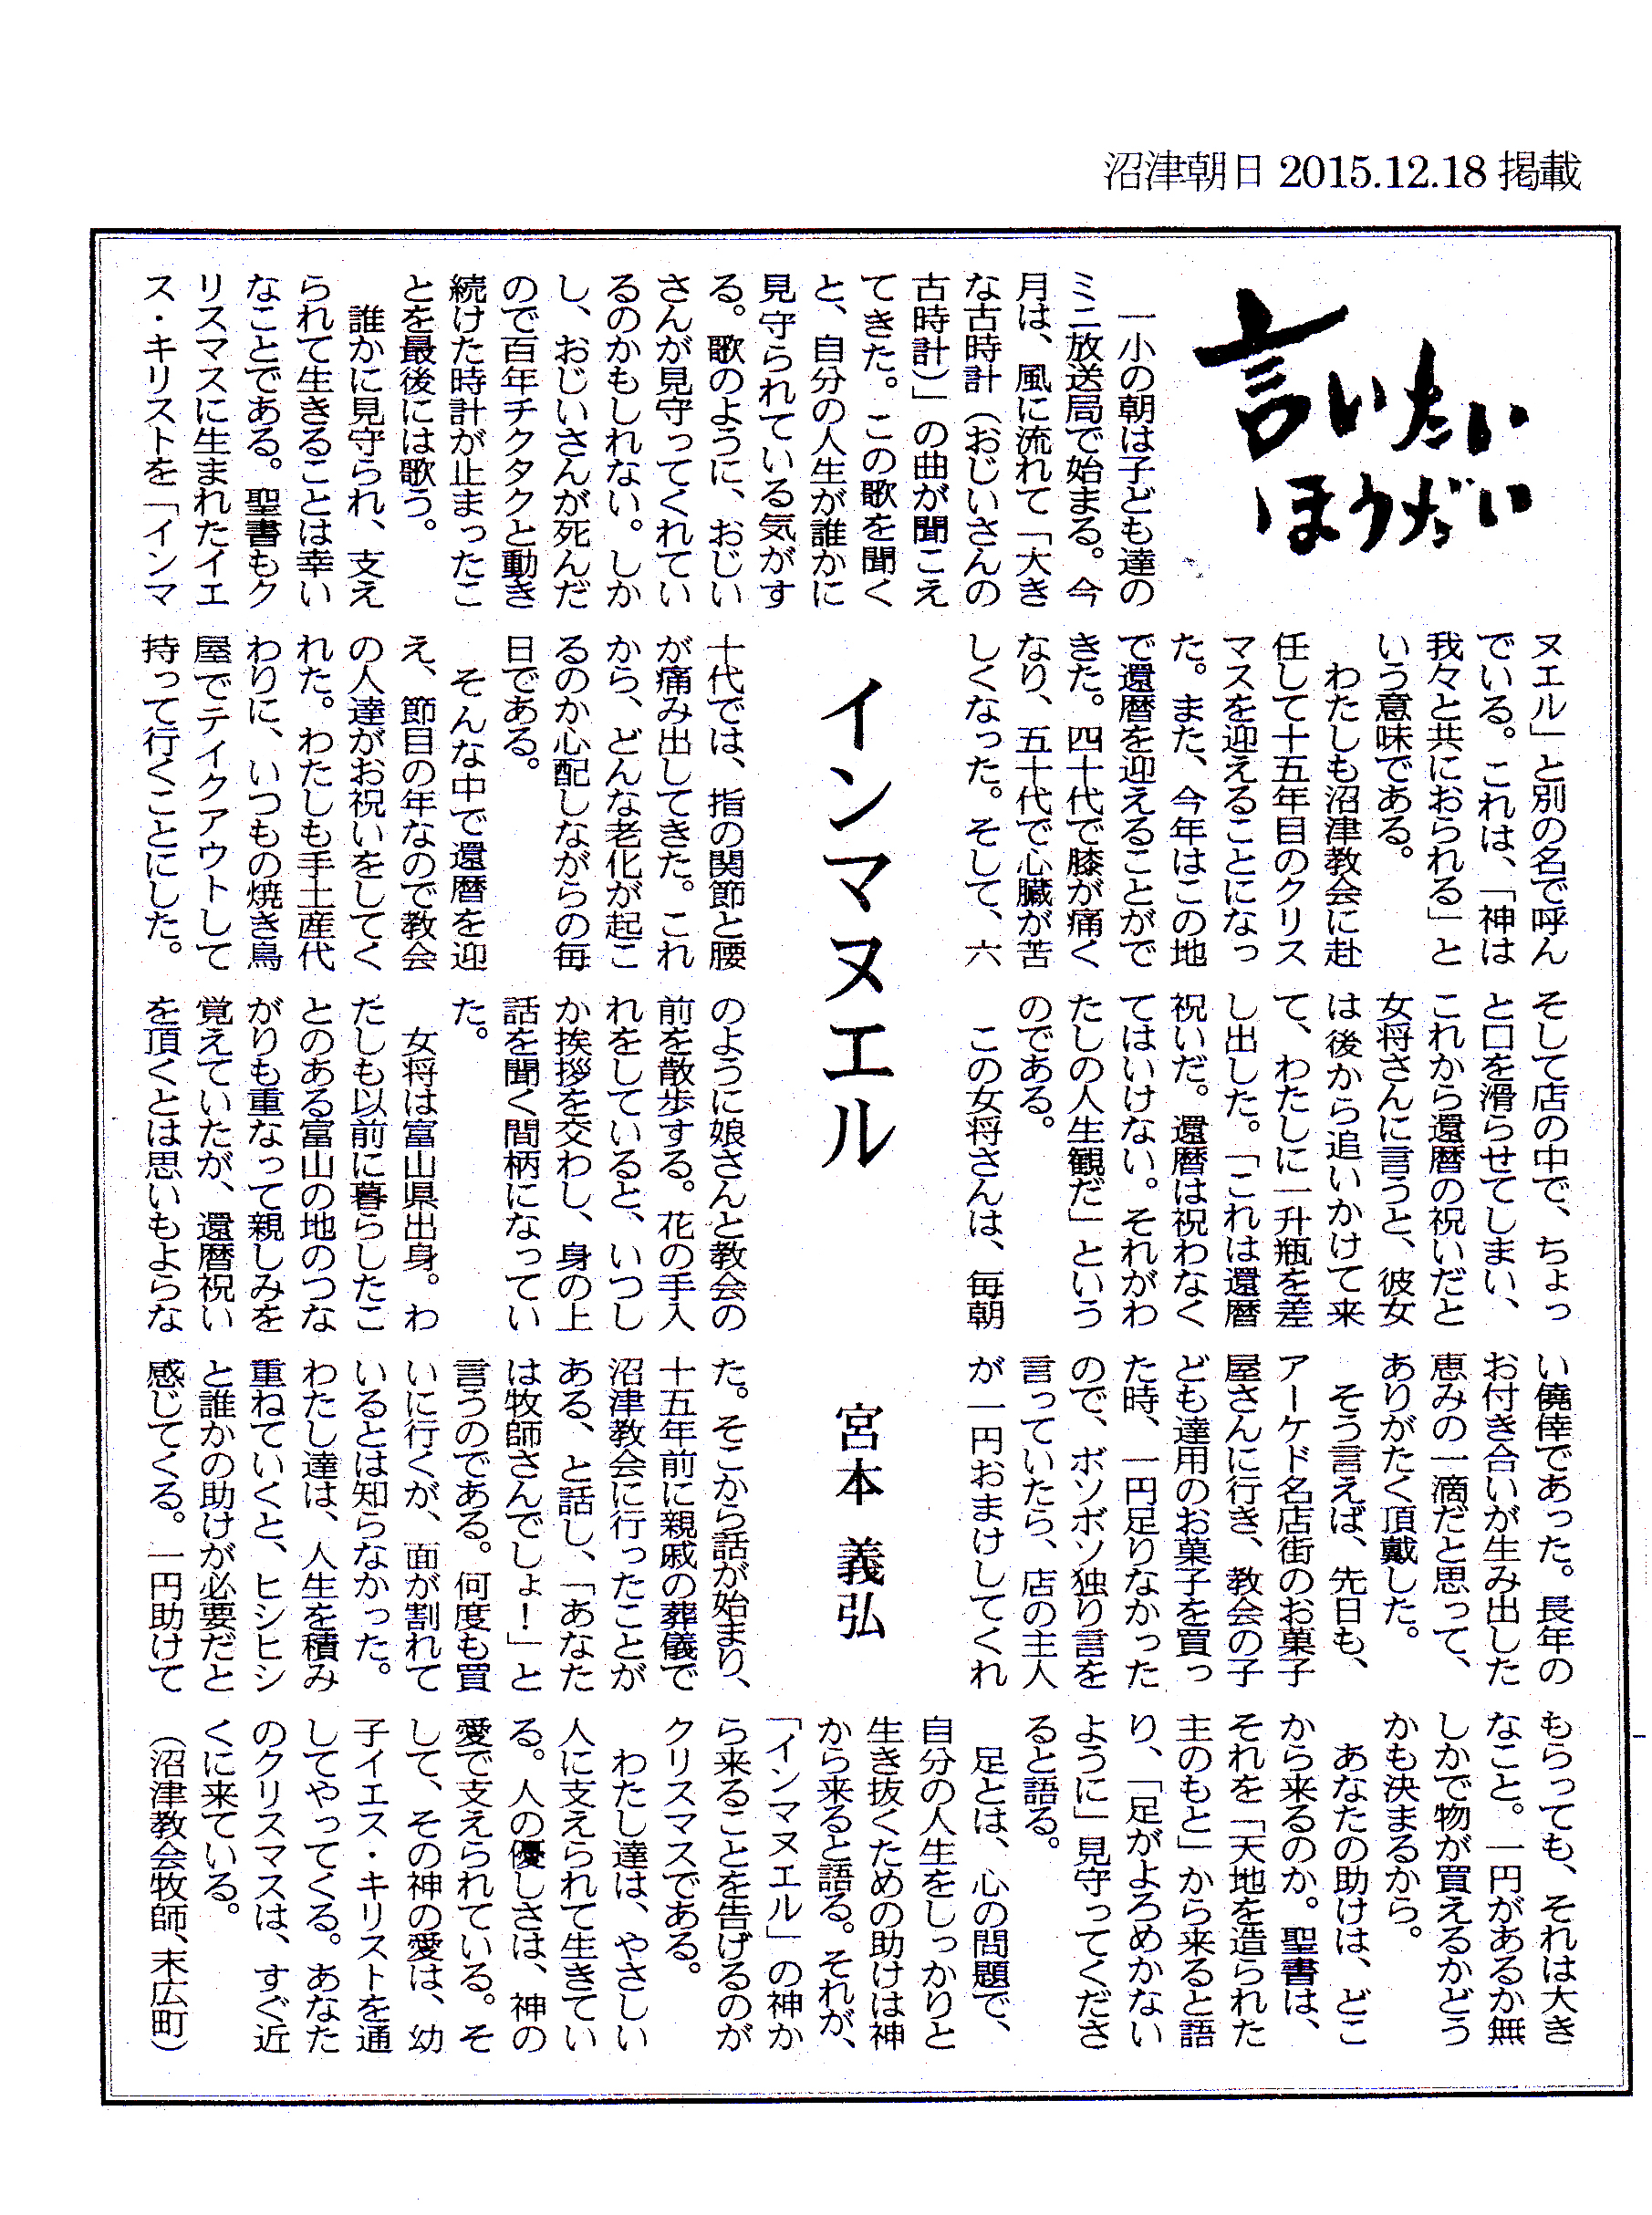 沼津朝日 2015.12.18 掲載
言いたい
ほうだい
インマヌエル
宮本 義弘
　一小の朝は子ども達の
ミニ放送局で始まる。今
月は、風に流れて「大き
な古時計（おじいさんの
古時計）」の曲が聞こえ
てきた。この歌を聞く
と、自分の人生が誰かに
見守られている気がす
る。歌のように、おじい
さんが見守ってくれてい
るのかもしれない。しか
し、おじいさんが死んだ
ので百年チクタクと動き
続けた時計が止まったこ
とを最後には歌う。
　誰かに見守られ、支え
られて生きることは幸い
なことである。聖書もク
リスマスに生まれたイエ
ス・キリストを「インマ
ヌエル」と別の名で呼ん
でいる。これは、「神は
我々と共におられる」と
いう意味である。
　わたしも沼津教会に赴
任して十五年目のクリス
マスを迎えることになっ
た。また、今年はこの地
で還暦を迎えることがで
きた。四十代で膝が痛く
なり、五十代で心臓が苦
しくなった。そして、六
十代では、指の関節と腰
が痛み出してきた。これ
から、どんな老化が起こ
るのか心配しながらの毎
日である。
　そんな中で還暦を迎
え、節目の年なので教会
の人達がお祝いをしてく
れた。わたしも手土産代
わりに、いつもの焼き鳥
屋でテイクアウトして
持って行くことにした。
そして店の中で、ちょっ
と口を滑らせてしまい、
これから還暦の祝いだと
女将さんに言うと、彼女
は後から追いかけて来
て、わたしに一升瓶を差
し出した。「これは還暦
祝いだ。還暦は祝わなく
てはいけない。それがわ
たしの人生観だ」という
のである。
　この女将さんは、毎朝
のように娘さんと教会の
前を散歩する。花の手入
れをしていると、いつし
か挨拶を交わし、身の上
話を聞く間柄になってい
た。
　女将は富山県出身。わ
たしも以前に暮らしたこ
とのある富山の地のつな
がりも重なって親しみを
覚えていたが、還暦祝い
を頂くとは思いもよらな
い僥倖であった。長年の
お付き合いが生み出した
恵みの一滴だと思って、
ありがたく頂戴した。
　そう言えば、先日も、
アーケド名店街のお菓子
屋さんに行き、教会の子
ども達用のお菓子を買っ
た時、一円足りなかった
ので、ボソボソ独り言を
言っていたら、店の主人
が一円おまけしてくれ
た。そこから話が始まり、
十五年前に親戚の葬儀で
沼津教会に行ったことが
ある、と話し、「あなた
は牧師さんでしょ！」と
言うのである。何度も買
いに行くが、面が割れて
いるとは知らなかった。
わたし達は、人生を積み
重ねていくと、ヒシヒシ
と誰かの助けが必要だと
感じてくる。一円助けて
もらっても、それは大き
なこと。一円があるか無
しかで物が買えるかどう
かも決まるから。
　あなたの助けは、どこ
から来るのか。聖書は、
それを「天地を造られた
主のもと」から来ると語
り、「足がよろめかない
ように」見守ってくださ
ると語る。
　足とは、心の問題で、
自分の人生をしっかりと
生き抜くための助けは神
から来ると語る。それが、
「インマヌエル」の神か
ら来ることを告げるのが
クリスマスである。
　わたし達は、やさしい
人に支えられて生きてい
る。人の優しさは、神の
愛で支えられている。そ
して、その神の愛は、幼
子イエス・キリストを通
してやってくる。あなた
のクリスマスは、すぐ近
くに来ている。
（沼津教会牧師、末広町）